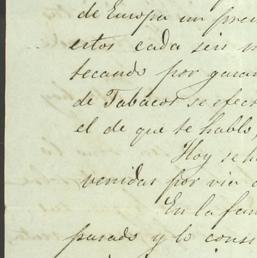 de Europa un pre
estos cada seis m
tecando por garan
de Tabacos se efect
el de que te hablo,
Hoy se h
venidas por via
En la fam
pasado y lo cons